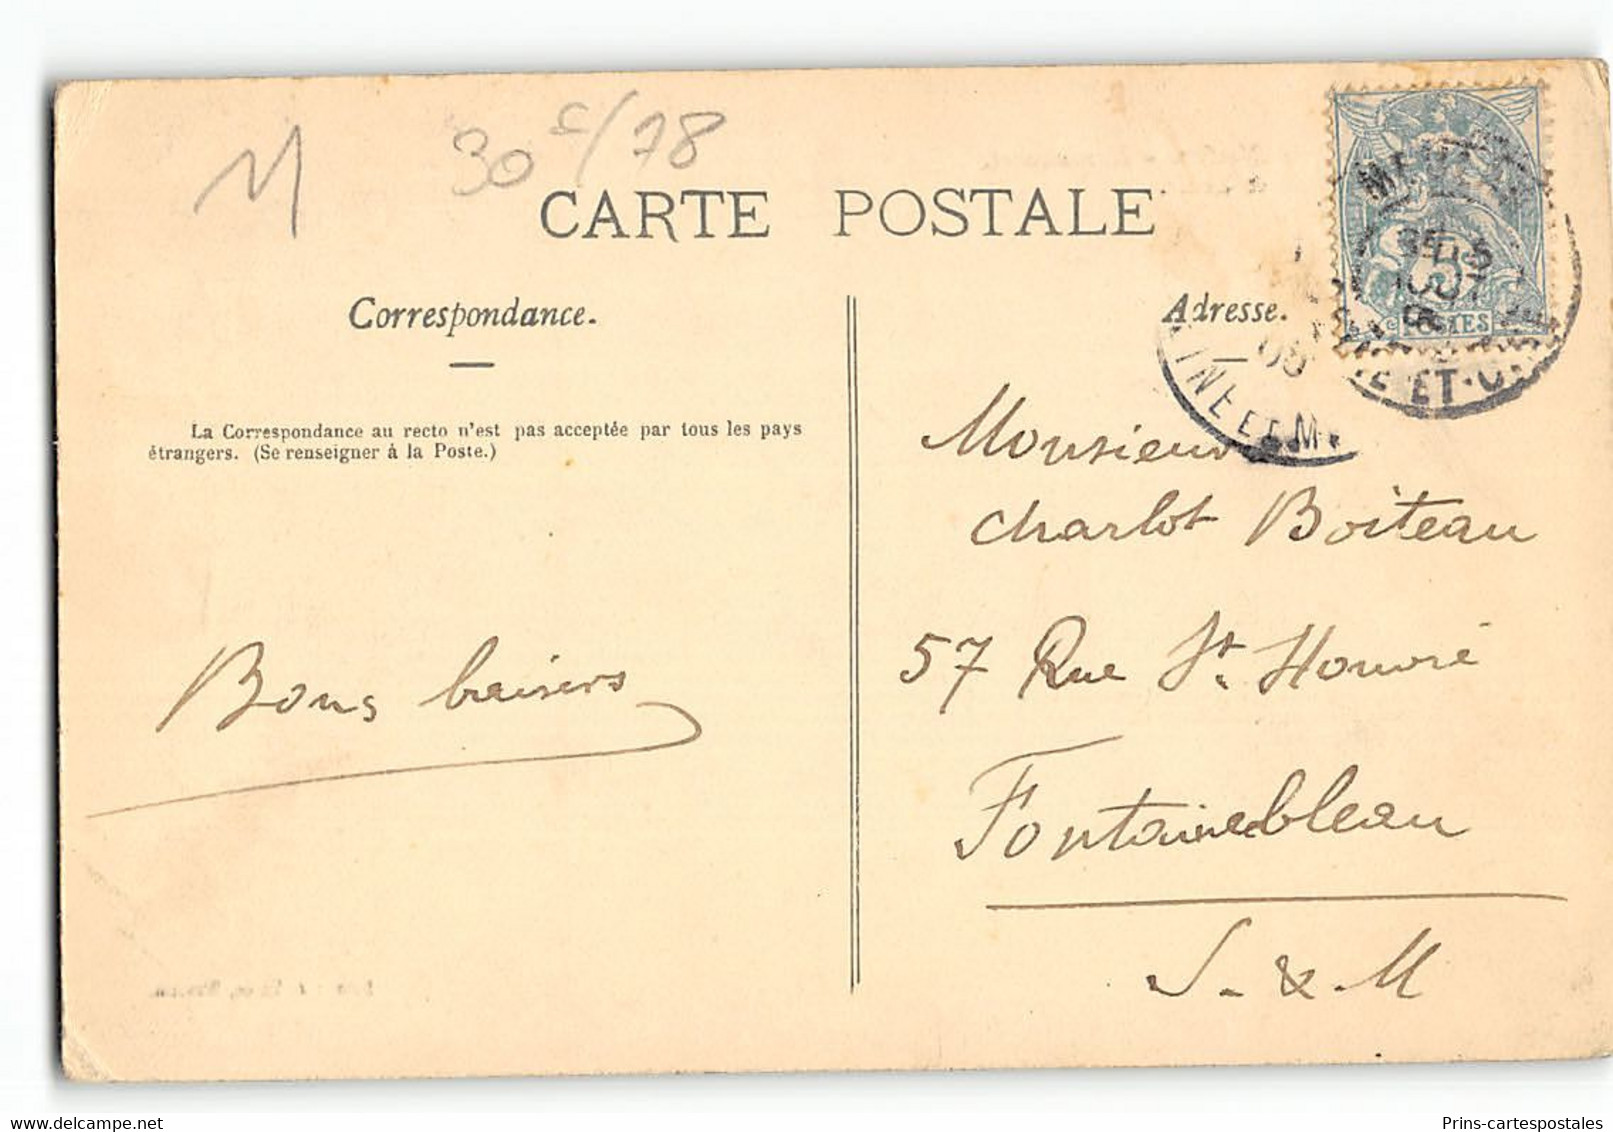 M
30 F/78
CARTE POSTALE
Correspondance.
Adresse.
La Correspondance au recto n'est pas acceptée par tous les pays
étrangers. (Se renseigner à la Poste.)
Monsieur
Charlot Boiteau
57 Rue St. Honoré
Fontainebleau
S. & M
Bons baisers
5
POSTES
ET
INE ET M
delcampe.net
Prins-cartespostales